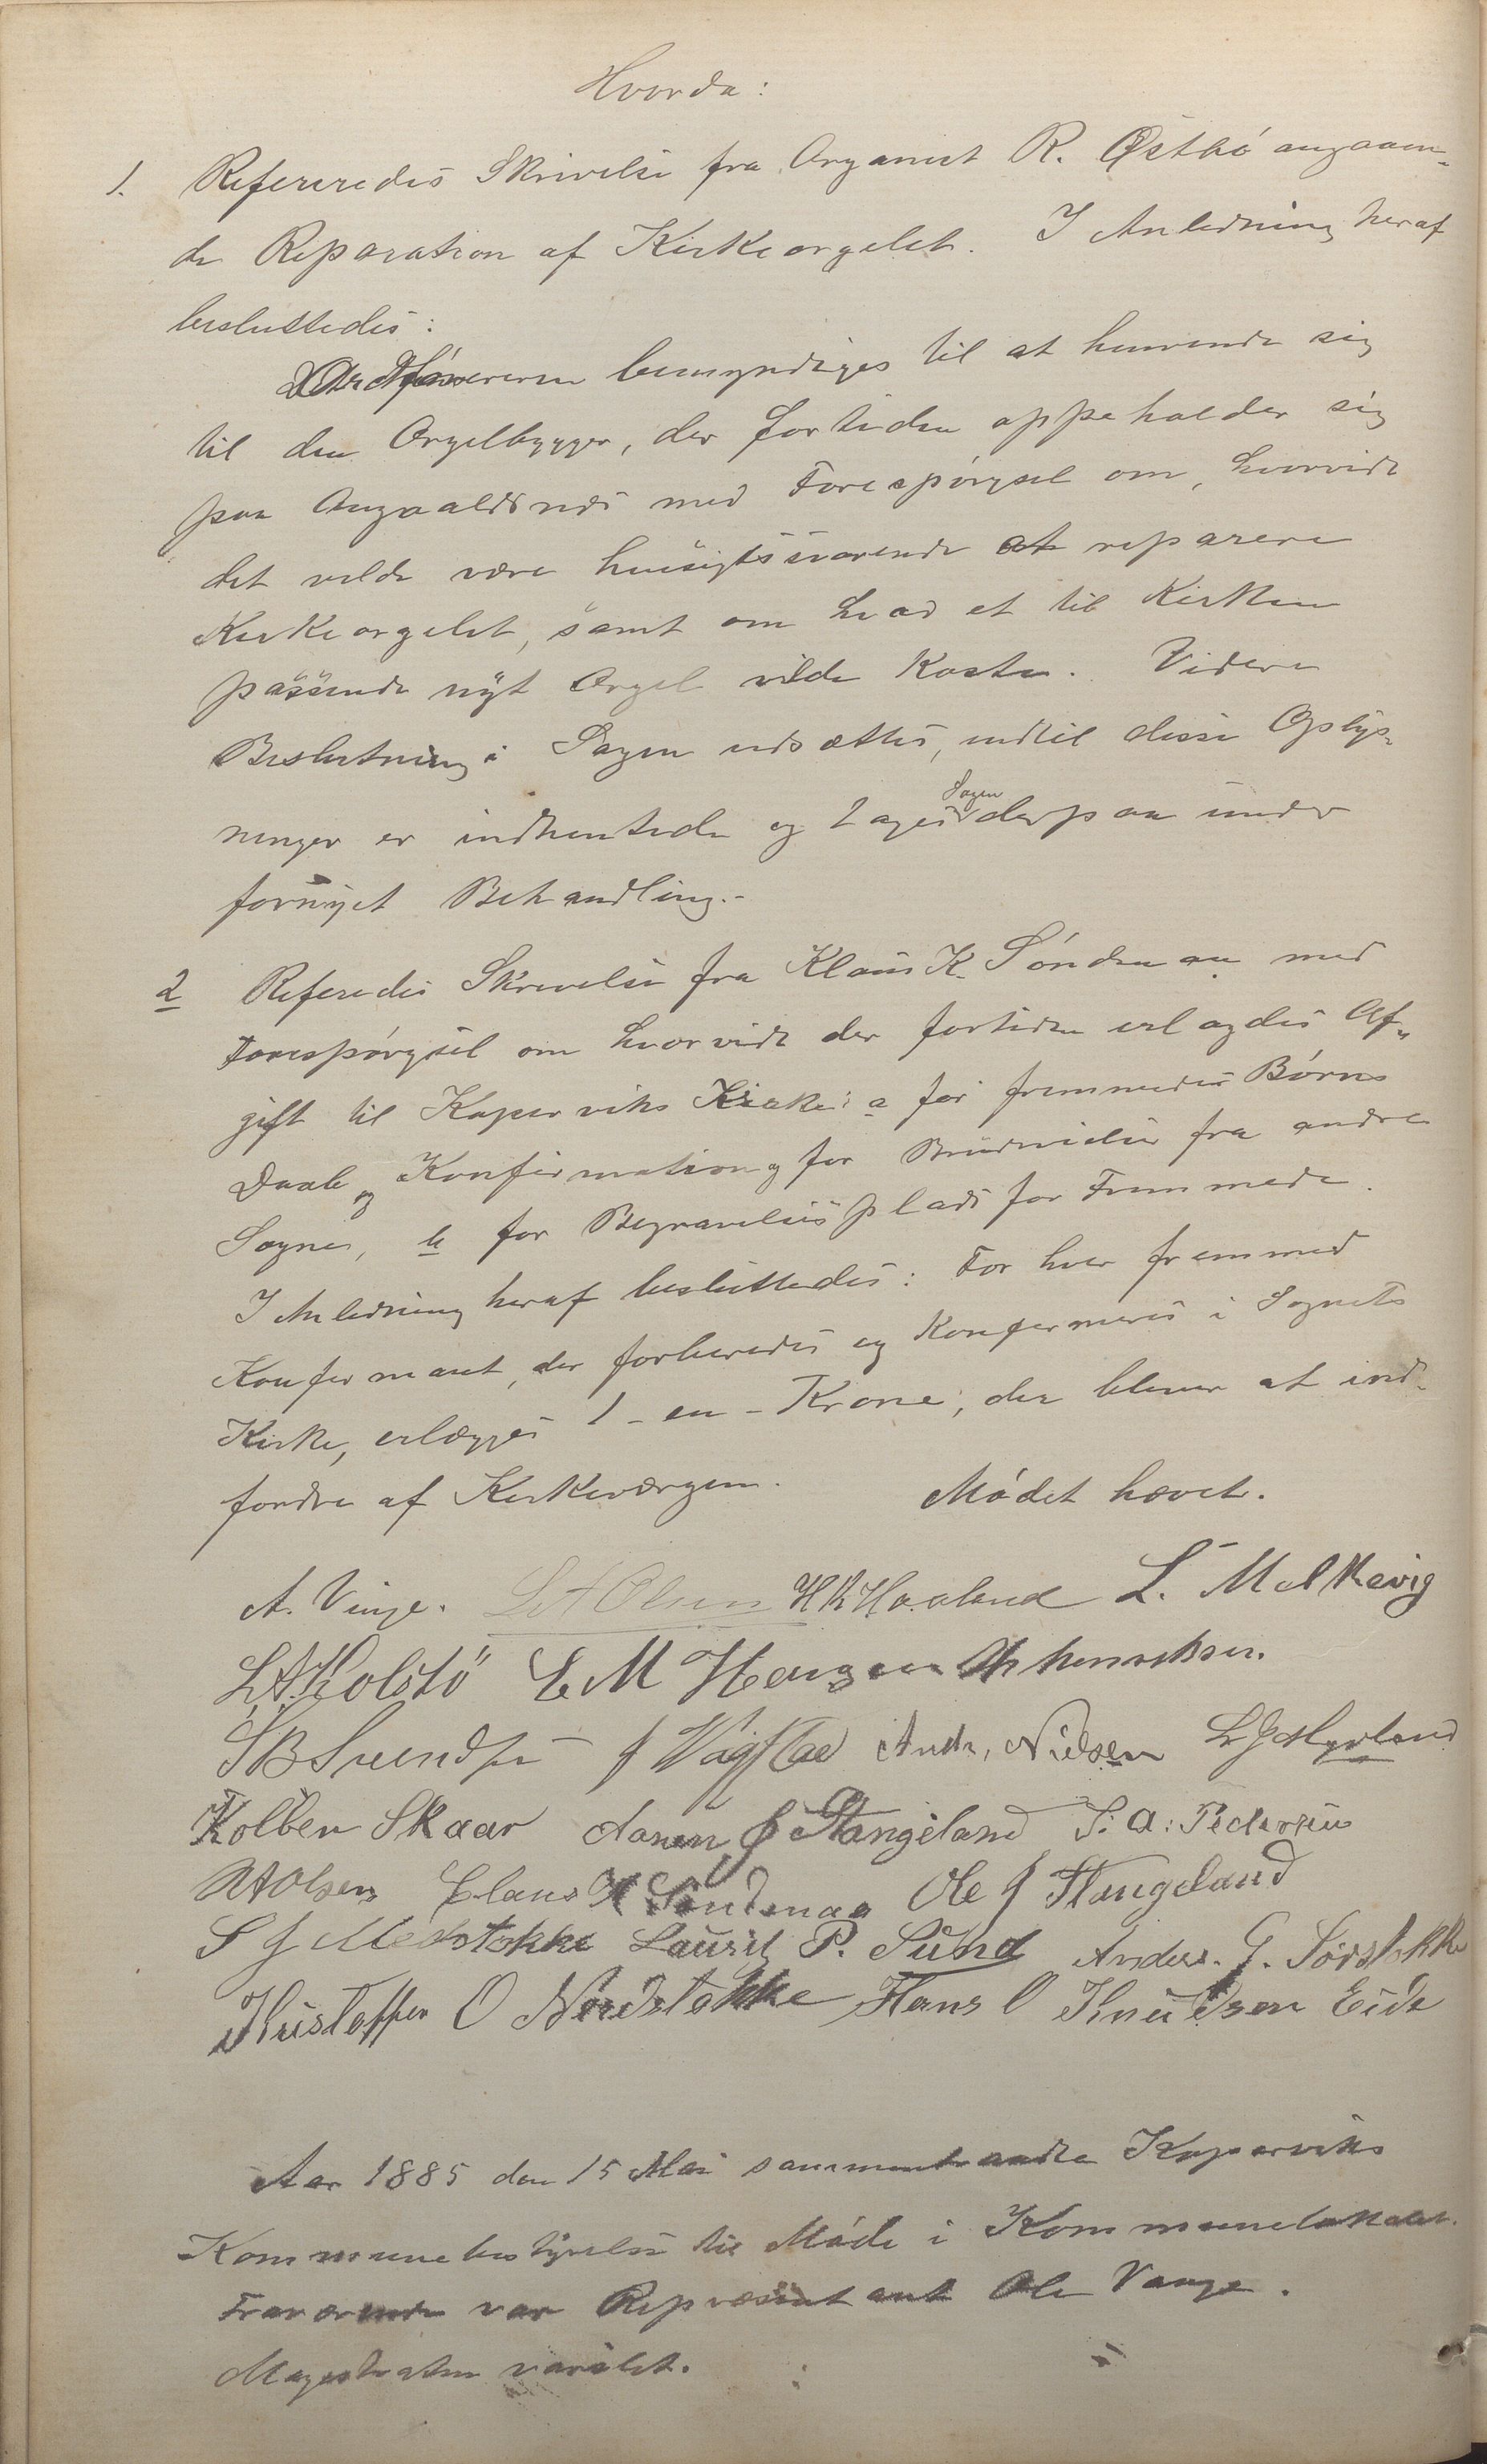 Hvorda:
1. Refereredes Skrivelse fra Organist R. Østbö angaaen-
de Reparation af Kirkeorgelet. I Anledning heraf
besluttedes:
Ordföreren bemyndiges til at henvende sig
til den Orgelbygger, der fortiden oppeholder sig
paa Avgaldsnæs med Forespörgsel om, hvorvidt
det vilde være hensigtssvarende at reparere
Kirkeorgelet, samt om hvad et til Kirken
passende nyt Orgel vilde koste. Videre
Beslutning i Sagen udsættes, indtil disse Oplys-
ninger er indhentede og tages Sagen derpaa under
fornyet Behandling.-
2 Referedes Skrivelse fra Klaus K. Söndenaa med
Forespörgsel om hvorvidt der fortiden erlagdes Af-
gift til Koperviks Kirke: a for fremmedes Börns
Daab og Konfirmation og for Brudevielser fra andre
Sogne, b for Begravelsesplads for Fremmede.
I Anledning heraf besluttedes: For hver fremmed
Konfirmant, der forberedes og konfirmeres i Sognets
Kirke, erlægges 1 - en - Krone, der bliver at ind-
fordre af Kirkeværgen. Mödet hævet.
A. Vinje. L A Olsen H K Haaland L. Melkevig
L.A. Kolstö E M Hansen
S B Svendsen J Vagflae Andr. Nielsen L J Myrland
Kolben Skaar J Stangeland S. A. Pedersen
N A Olsen Claus K Söndenaa Ole J Stangeland
S J Medstokke Lauritz P. Sund Anders. G. Sörstokke
Kristoffer O Nordstokke Hans O Knudsen Eide
Aar 1885 den 15 Mai sammentraadte Koperviks
Kommunebestyrelse til Möde i Kommunelokalet.
Fraværende var Repræsentant Ole Vange.
Magistraten varslet.